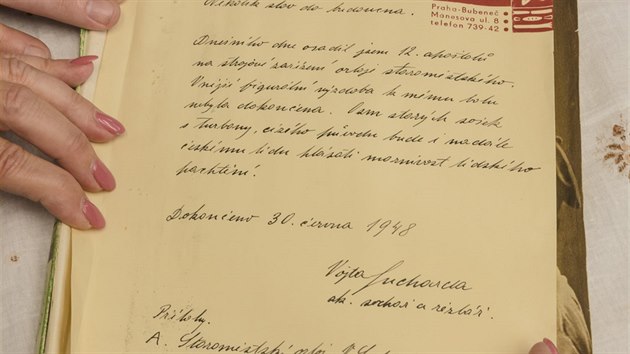 Několik slov do budoucna.
Praha-Bubeneč
Manesova ul. 8
telefon 739-42
Dnešního dne osadil jsem 12 apoštolů
na strojové zařízení orloje staroměstského.
Vnější figurální výzdoba k mému bolu
nebyla dokončena. Osm starých sošek
s turbany, cizého původu bude i nadále
českému lidu hlásati marnivost lidského
pachtění.
Dokončeno 30 června 1948
Vojta Sucharda
ak. sochař a řezbář.
Přílohy.
A. Staroměstský orloj